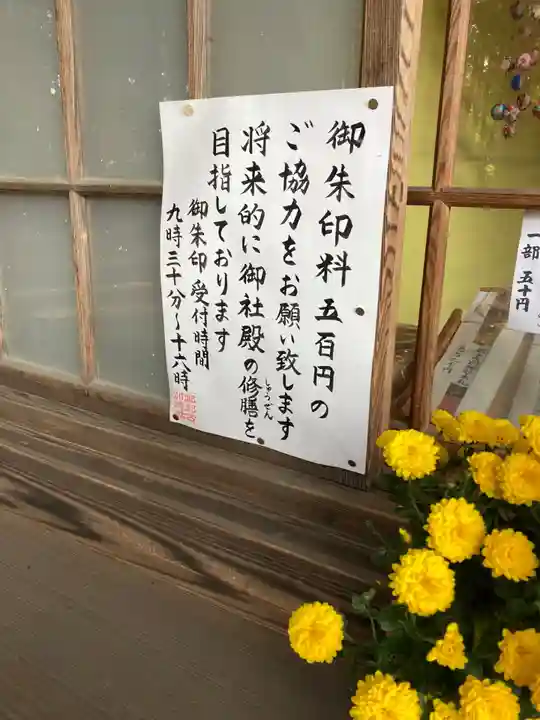 御朱印料五百円の
ご協力をお願い致します
将来的に御社殿の修膳を
しゅうぜん
目指しております
御朱印受付時間
九時三十分～十六時
一部 五十円